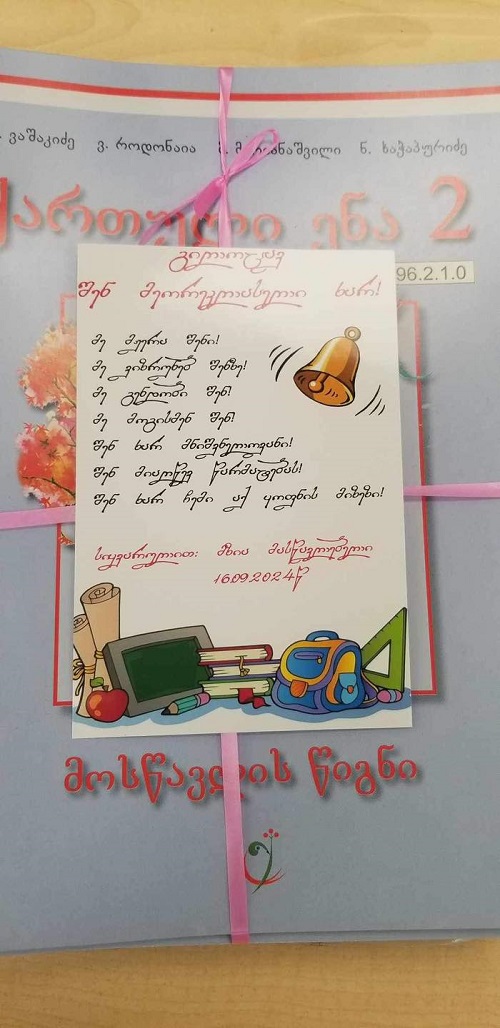 . ვაშაკიძე ვ. როდონაია ნ. ხაჭაპურიძე
ქართული ენა 2
96.2.1.0
გილოცავ
შენ მეორეკლასელი ხარ!
მე მჯერა შენი!
მე ვიზრუნებ შენზე!
მე გენდობი შენ!
მე მოგისმენ შენ!
შენ ხარ მნიშვნელოვანი!
შენ მიაღწევ წარმატებას!
შენ ხარ ჩემი აქ ყოფნის მიზეზი!
სიყვარულით: მზია მასწავლებელი
16.09.2024წ
მოსწავლის წიგნი